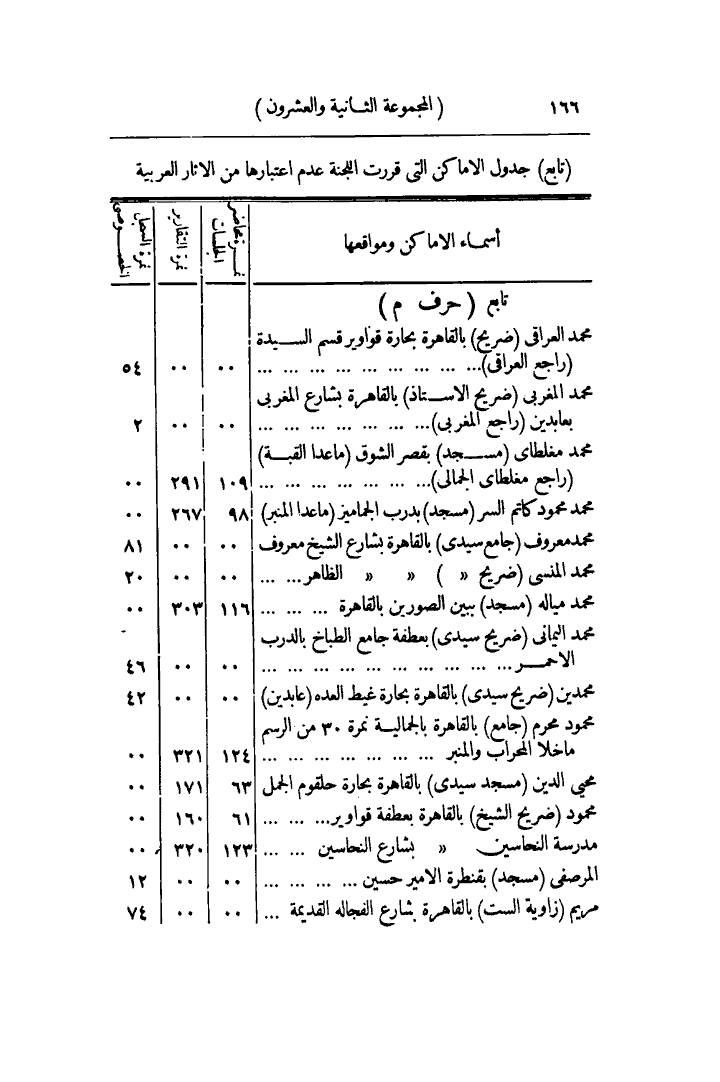 ١٦٦ (المجموعة الثانية والعشرون)
(تابع) جدول الاماكن التى قررت اللجنة عدم اعتبارها من الاثار العربية
أسماء الاماكن ومواقعها نمرة محاضر الجلسات نمرة التقارير نمرة السجل الخصوصى
تابع (حرف م)
محمد العراقى (ضريح) بالقاهرة بحارة قواوير قسم السيدة
(راجع العراقى)... ... ... ... ... ... ... ... ... ٠٠ ٠٠ ٥٤
محمد المغربى (ضريح الاستاذ) بالقاهرة بشارع المغربى
بعابدين (راجع المغربى)... ... ... ... ... ... ... ٠٠ ٠٠ ٢
محمد مغلطاى (مسجد) بقصر الشوق (ماعدا القبة)
(راجع مغلطاى الجمالى)... ... ... ... ... ... ... ١٠٩ ٢٩١ ٠٠
محمد محمود كاتم السر (مسجد) بدرب الجماميز (ماعدا المنبر) ٩٨ ٢٦٧ ٠٠
محمد معروف (جامع سيدى) بالقاهرة بشارع الشيخ معروف ٠٠ ٠٠ ٨١
محمد المنسى (ضريح » ) » » الظاهر... ... ٠٠ ٠٠ ٢٠
محمد مياله (مسجد) ببين الصورين بالقاهرة ... ... ... ١١٦ ٣٠٣ ٠٠
محمد اليمانى (ضريح سيدى) بعطفة جامع الطباخ بالدرب
الاحمر... ... ... ... ... ... ... ... ... ... ٠٠ ٠٠ ٤٦
محمدين (ضريح سيدى) بالقاهرة بحارة غيط العده (عابدين) ٠٠ ٠٠ ٤٢
محمود محرم (جامع) بالقاهرة بالجمالية نمرة ٣٠ من الرسم
ماخلا المحراب والمنبر ... ... ... ... ... ... ... ١٢٤ ٣٢١ ٠٠
محيى الدين (مسجد سيدى) بالقاهرة بحارة حلقوم الجمل ٦٣ ١٧١ ٠٠
محمود (ضريح الشيخ) بالقاهرة بعطفة قواوير... ... ... ٦١ ١٦٠ ٠٠
مدرسة النحاسين » بشارع النحاسين ... ... ١٢٣ ٣٢٠ ٠٠
المرصفى (مسجد) بقنطرة الامير حسين ... ... ... ... ٠٠ ٠٠ ١٢
مريم (زاوية الست) بالقاهرة بشارع الفجاله القديمة ... ٠٠ ٠٠ ٧٤